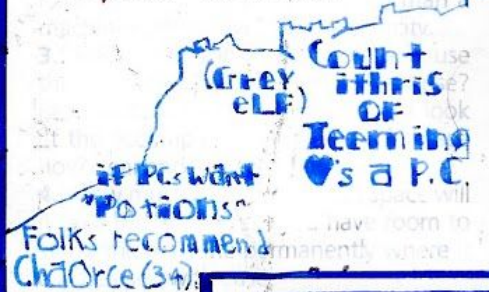 (Grey
elf)
Count
ithris
OF
Teeming
♥'s a P.C.
if PCs want
"Potions"
Folks recommend
ChaOrce (34).
have room to
permanently where